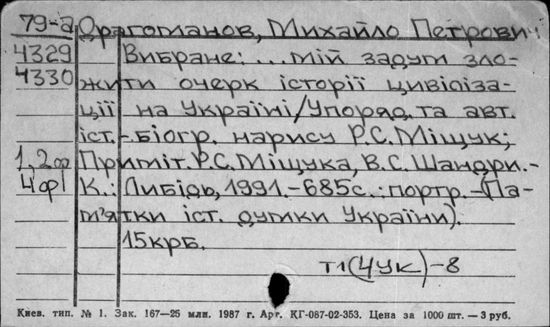 79-а Драгоманов, Михайло Петрович
4329 Вибране: ...мій задум зло-
4330 жити очерк історії цивіліза-
ції на Україні/Упоряд. та авт.
іст.-біогр. нарису Р.С.Міщук;
Приміт. Р.С.Міщука, В.С.Шандри.-
К.: Либідь, 1991.-685с.:портр.-(Па-
м'ятки іст. думки України).
15крб.
Т1(4УК)-8
Киев. тип. № 1. Зак. 167—25 млн. 1987 г. Арт. КГ-087-02-353. Цена за 1000 шт. — 3 руб.